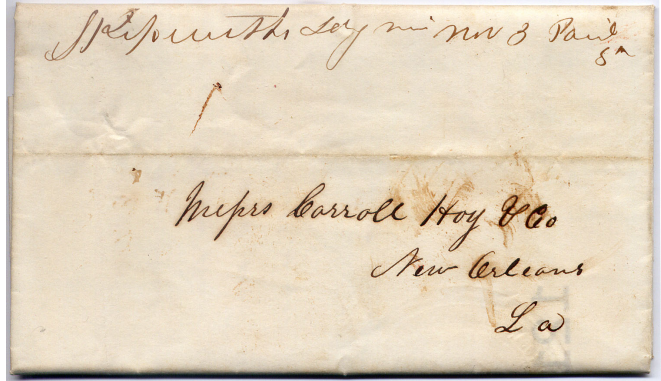 Skipwiths Ldg mi Nov 3 Paid
5
Messrs Carroll Hoy & Co
New Orleans
La